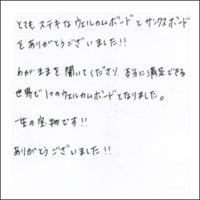 とても ステキな ウェルカムボードと サンクスボード
を ありがとうございました!!
わがままを聞いてくださり、本当に満足できる
世界で1つのウェルカムボードとなりました。
一生の宝物です!!
ありがとうございました!!